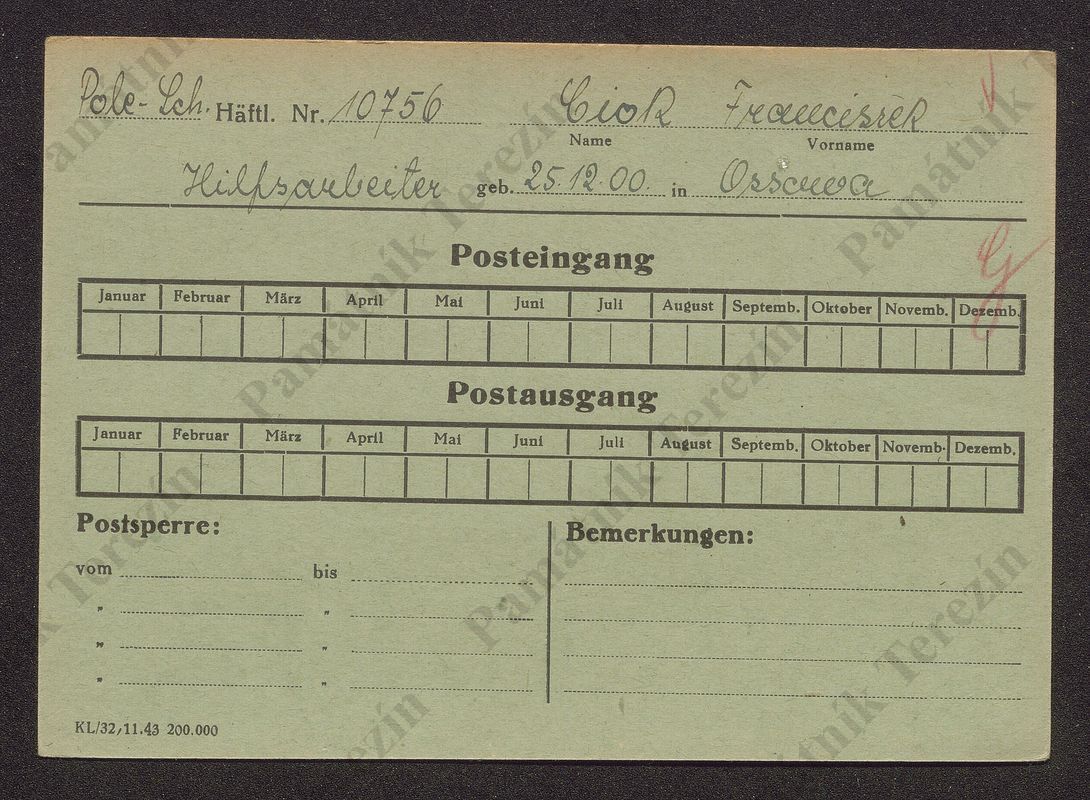 Pole-Sch. Häftl. Nr. 10756 Ciok Franciszek
Name Vorname
Hilfsarbeiter geb. 25.12.00. in Ossowa
Posteingang
Januar Februar März April Mai Juni Juli August Septemb. Oktober Novemb. Dezemb.
Postausgang
Januar Februar März April Mai Juni Juli August Septemb. Oktober Novemb. Dezemb.
Postsperre: Bemerkungen:
vom bis
" "
" "
" "
KL/32,11.43 200.000
Památník Terezín